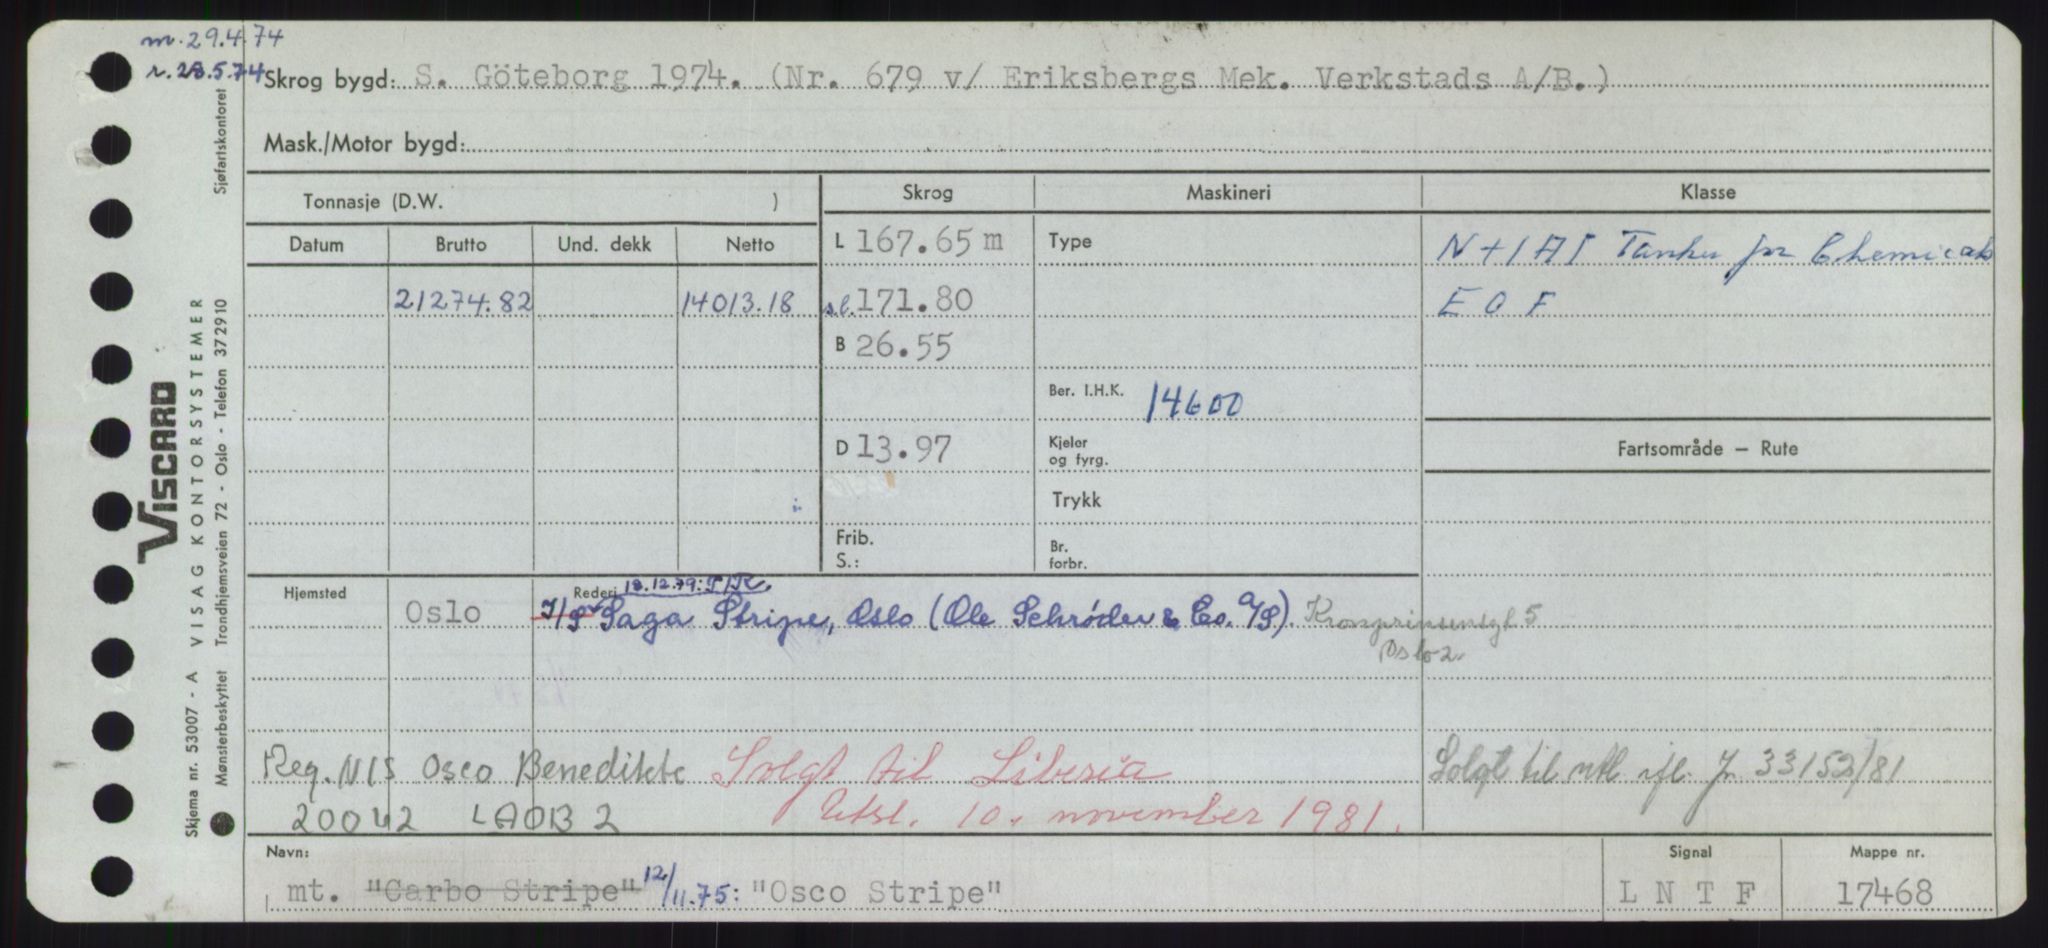 m. 29.4.74
r. 28.5.74
Skrog bygd: S. Göteborg 1974. (Nr. 679 v/ Eriksbergs Mek. Verkstads A/B.)
Mask./Motor bygd:
Tonnasje (D.W. )
Skrog
Maskineri
Klasse
Datum
Brutto
Und. dekk
Netto
L 167.65 m
Type
N + 1A1 Tanker for Chemicals
21274.82
14013.18
s.l. 171.80
E O F
B 26.55
Ber. I.H.K. 14600
D 13.97
Kjeler
og fyrg.
Fartsområde — Rute
Trykk
Frib.
S.:
Br.
forbr.
Hjemsted
Oslo
Rederi 18.12.79: P/R
I/S Saga Stripe, Oslo (Ole Schrøder & Co. A/S). Kronprinsensgt. 5
Oslo 2.
Reg. NIS Osco Benedikte
Solgt til Liberia
Solgt til utl. ifl. J. 33153/81
20042 LAOB 2
Utsl. 10. november 1981.
Navn:
mt. "Carbo Stripe" 12/11.75: "Osco Stripe"
Signal
L N T F
Mappe nr.
17468
Skjema nr. 53007 - A VISAG KONTORSYSTEMER
VISCARD
Mønsterbeskyttet Trondhjemsveien 72 - Oslo - Telefon 372910 Sjøfartskontoret